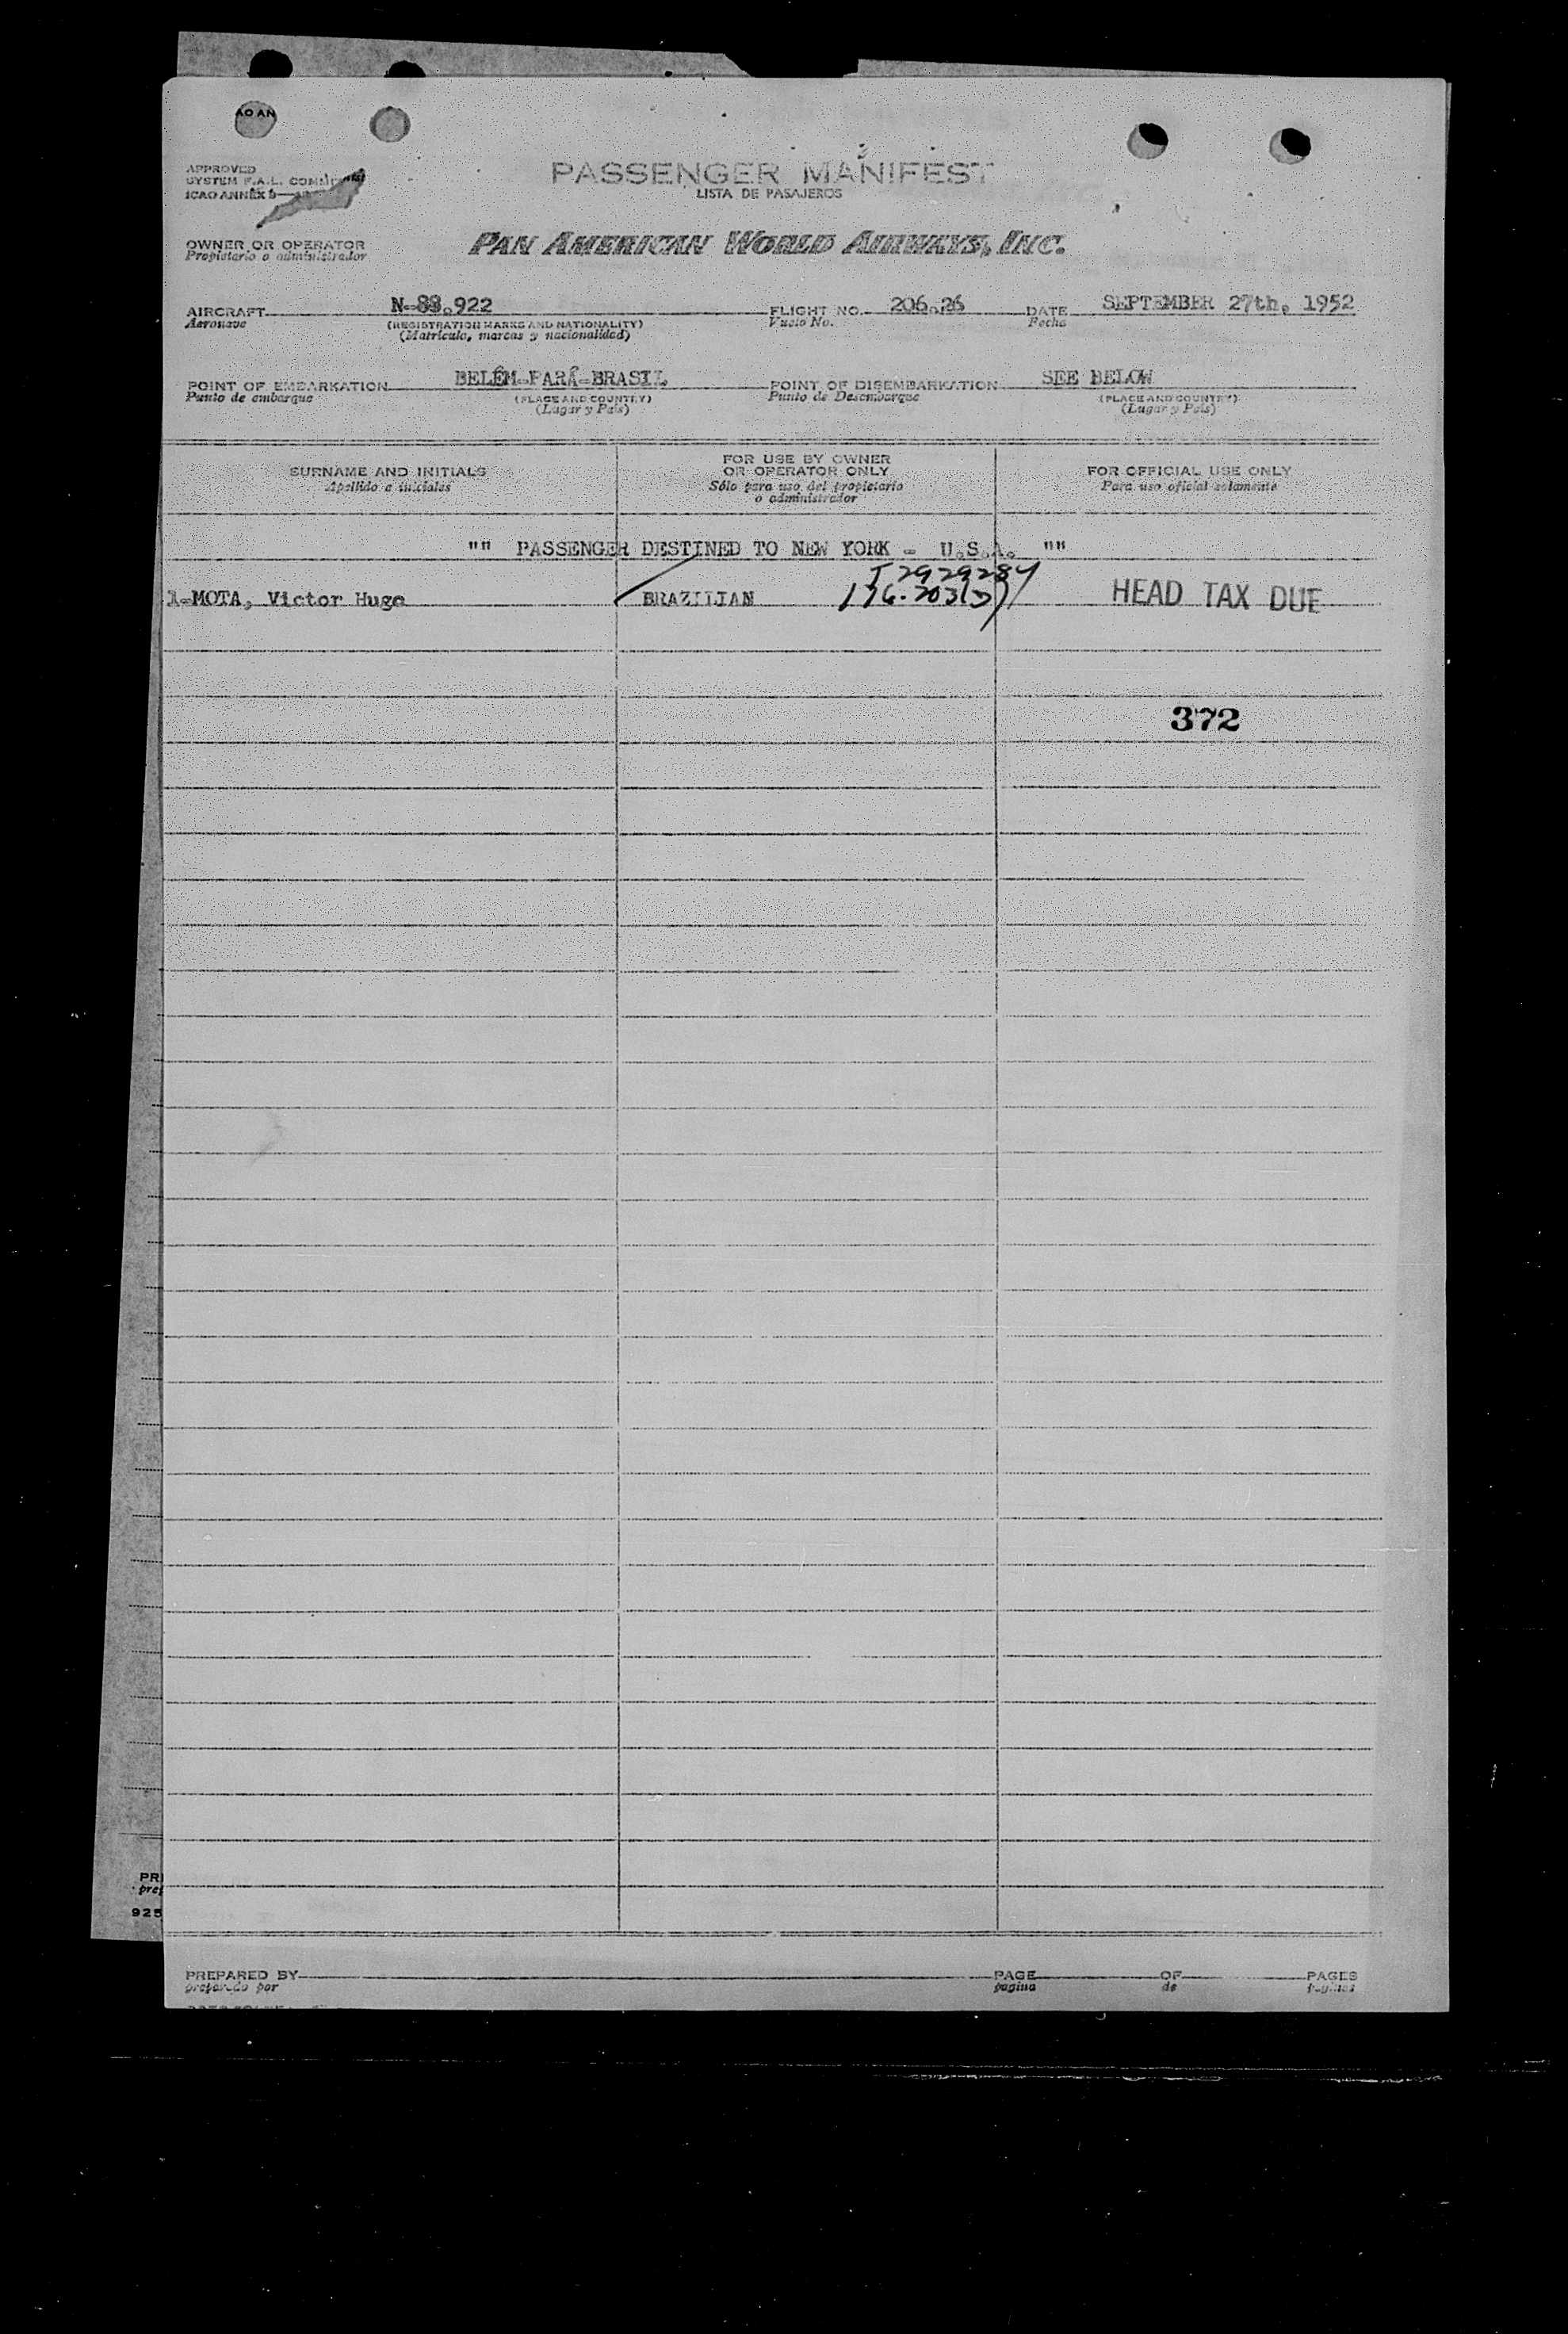 AO AN
APPROVED
SYSTEM F.A.L.
ICAO ANNEX 9
PASSENGER MANIFEST
LISTA DE PASAJEROS
OWNER OR OPERATOR
Propietario o administrador
PAN AMERICAN WORLD AIRWAYS, INC.
AIRCRAFT N-88.922 FLIGHT NO. 206.26 DATE SEPTEMBER 27th, 1952
Aeronave (REGISTRATION MARKS AND NATIONALITY) Vuelo No. Fecha
(Matrícula, marcas y nacionalidad)
POINT OF EMBARKATION BELÉM-PARÁ-BRASIL POINT OF DISEMBARKATION SEE BELOW
Punto de embarque (PLACE AND COUNTRY) Punto de Desembarque (PLACE AND COUNTRY)
(Lugar y País) (Lugar y País)
SURNAME AND INITIALS
Apellido e iniciales
FOR USE BY OWNER
OR OPERATOR ONLY
Sólo para uso del propietario
o administrador
FOR OFFICIAL USE ONLY
Para uso oficial solamente
"" PASSENGER DESTINED TO NEW YORK - U.S.A. ""
T 2929284
1-MOTA, Victor Hugo BRAZILIAN HEAD TAX DUE
372
PRE
prep
925
PREPARED BY PAGE OF PAGES
preparado por pagina de paginas